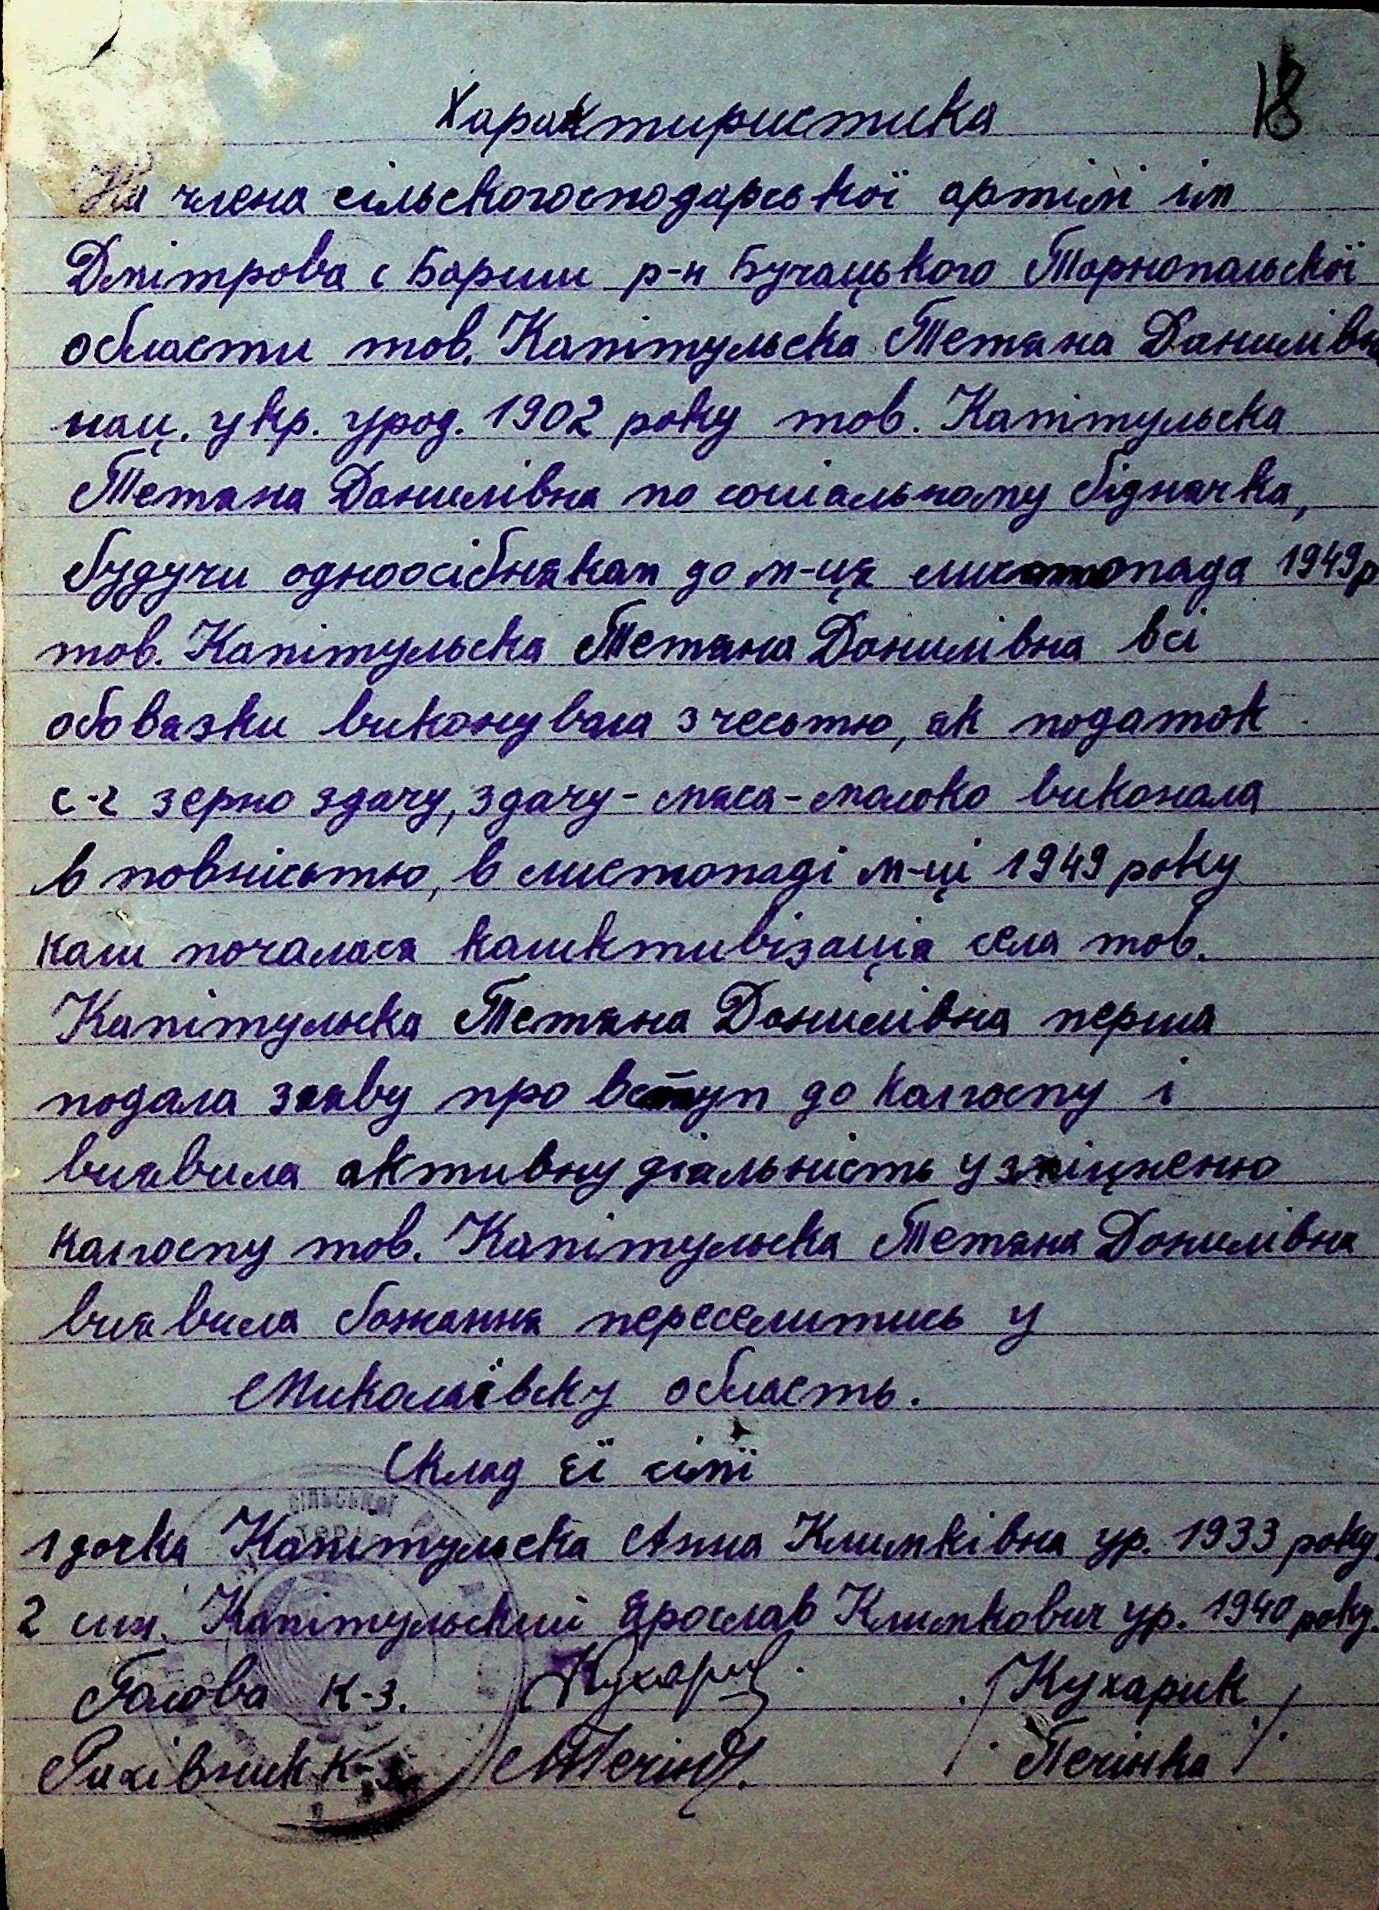 18
Характиристика
На члена сільскогосподарської артілі ім
Дмітрова с Бариш р-н Бучацького Тарнопальскої
области тов. Капітульска Тетяна Данилівна
нац. укр. урод. 1902 року тов. Капітульска
Тетяна Данилівна по соціальному біднячка,
будучи одноосібняком до м-ця листопада 1949р
тов. Капітульска Тетяна Данилівна всі
обовязки виконувала з чесьтю, як податок
с-г зерно здачу, здачу - мяса - молоко виконала
в повнісьтю, в листопаді м-ці 1949 року
коли почалася коликтивізація села тов.
Капітульска Тетяна Данилівна перша
подала заяву про вступ до колгоспу і
виявила активну діяльність у зміцненю
колгоспу тов. Капітульска Тетяна Данилівна
виявила бажання переселитись у
Миколаївску область.
Склад її сімї
1 дочка Капітульска Анна Климківна ур. 1933 року.
2 син. Капітульский Ярослав Климкович ур. 1940 року.
Голова к-з. Кухарик / Кухарик /
Рахівник к-з. Печінка / Печінка /
СІЛЬСЬКОЇ